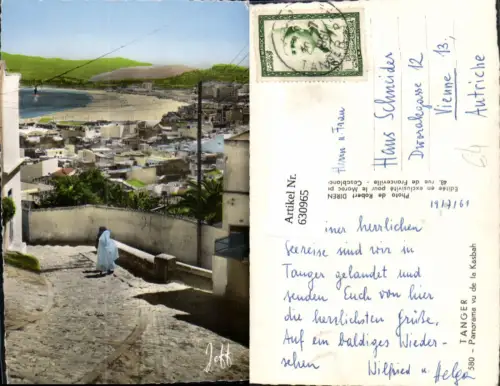 Jeff
TANGER
Herrn u Frau
Hans Schneider
Dvorakgasse 12
Vienne 13,
Autriche
64
Artikel Nr.
630965
Photo de Robert DIREN
Editée en exclusivité pour le Maroc par
48, rue de Franceville - Casablanca
19/4/61
einer herrlichen
Seereise sind wir in
Tanger gelandet und
senden Euch von hier
die herrlichsten Grüße,
Auf ein baldiges Wieder-
sehen
Wilfried u. Helga
TANGER
580 - Panorama vu de la Kasbah